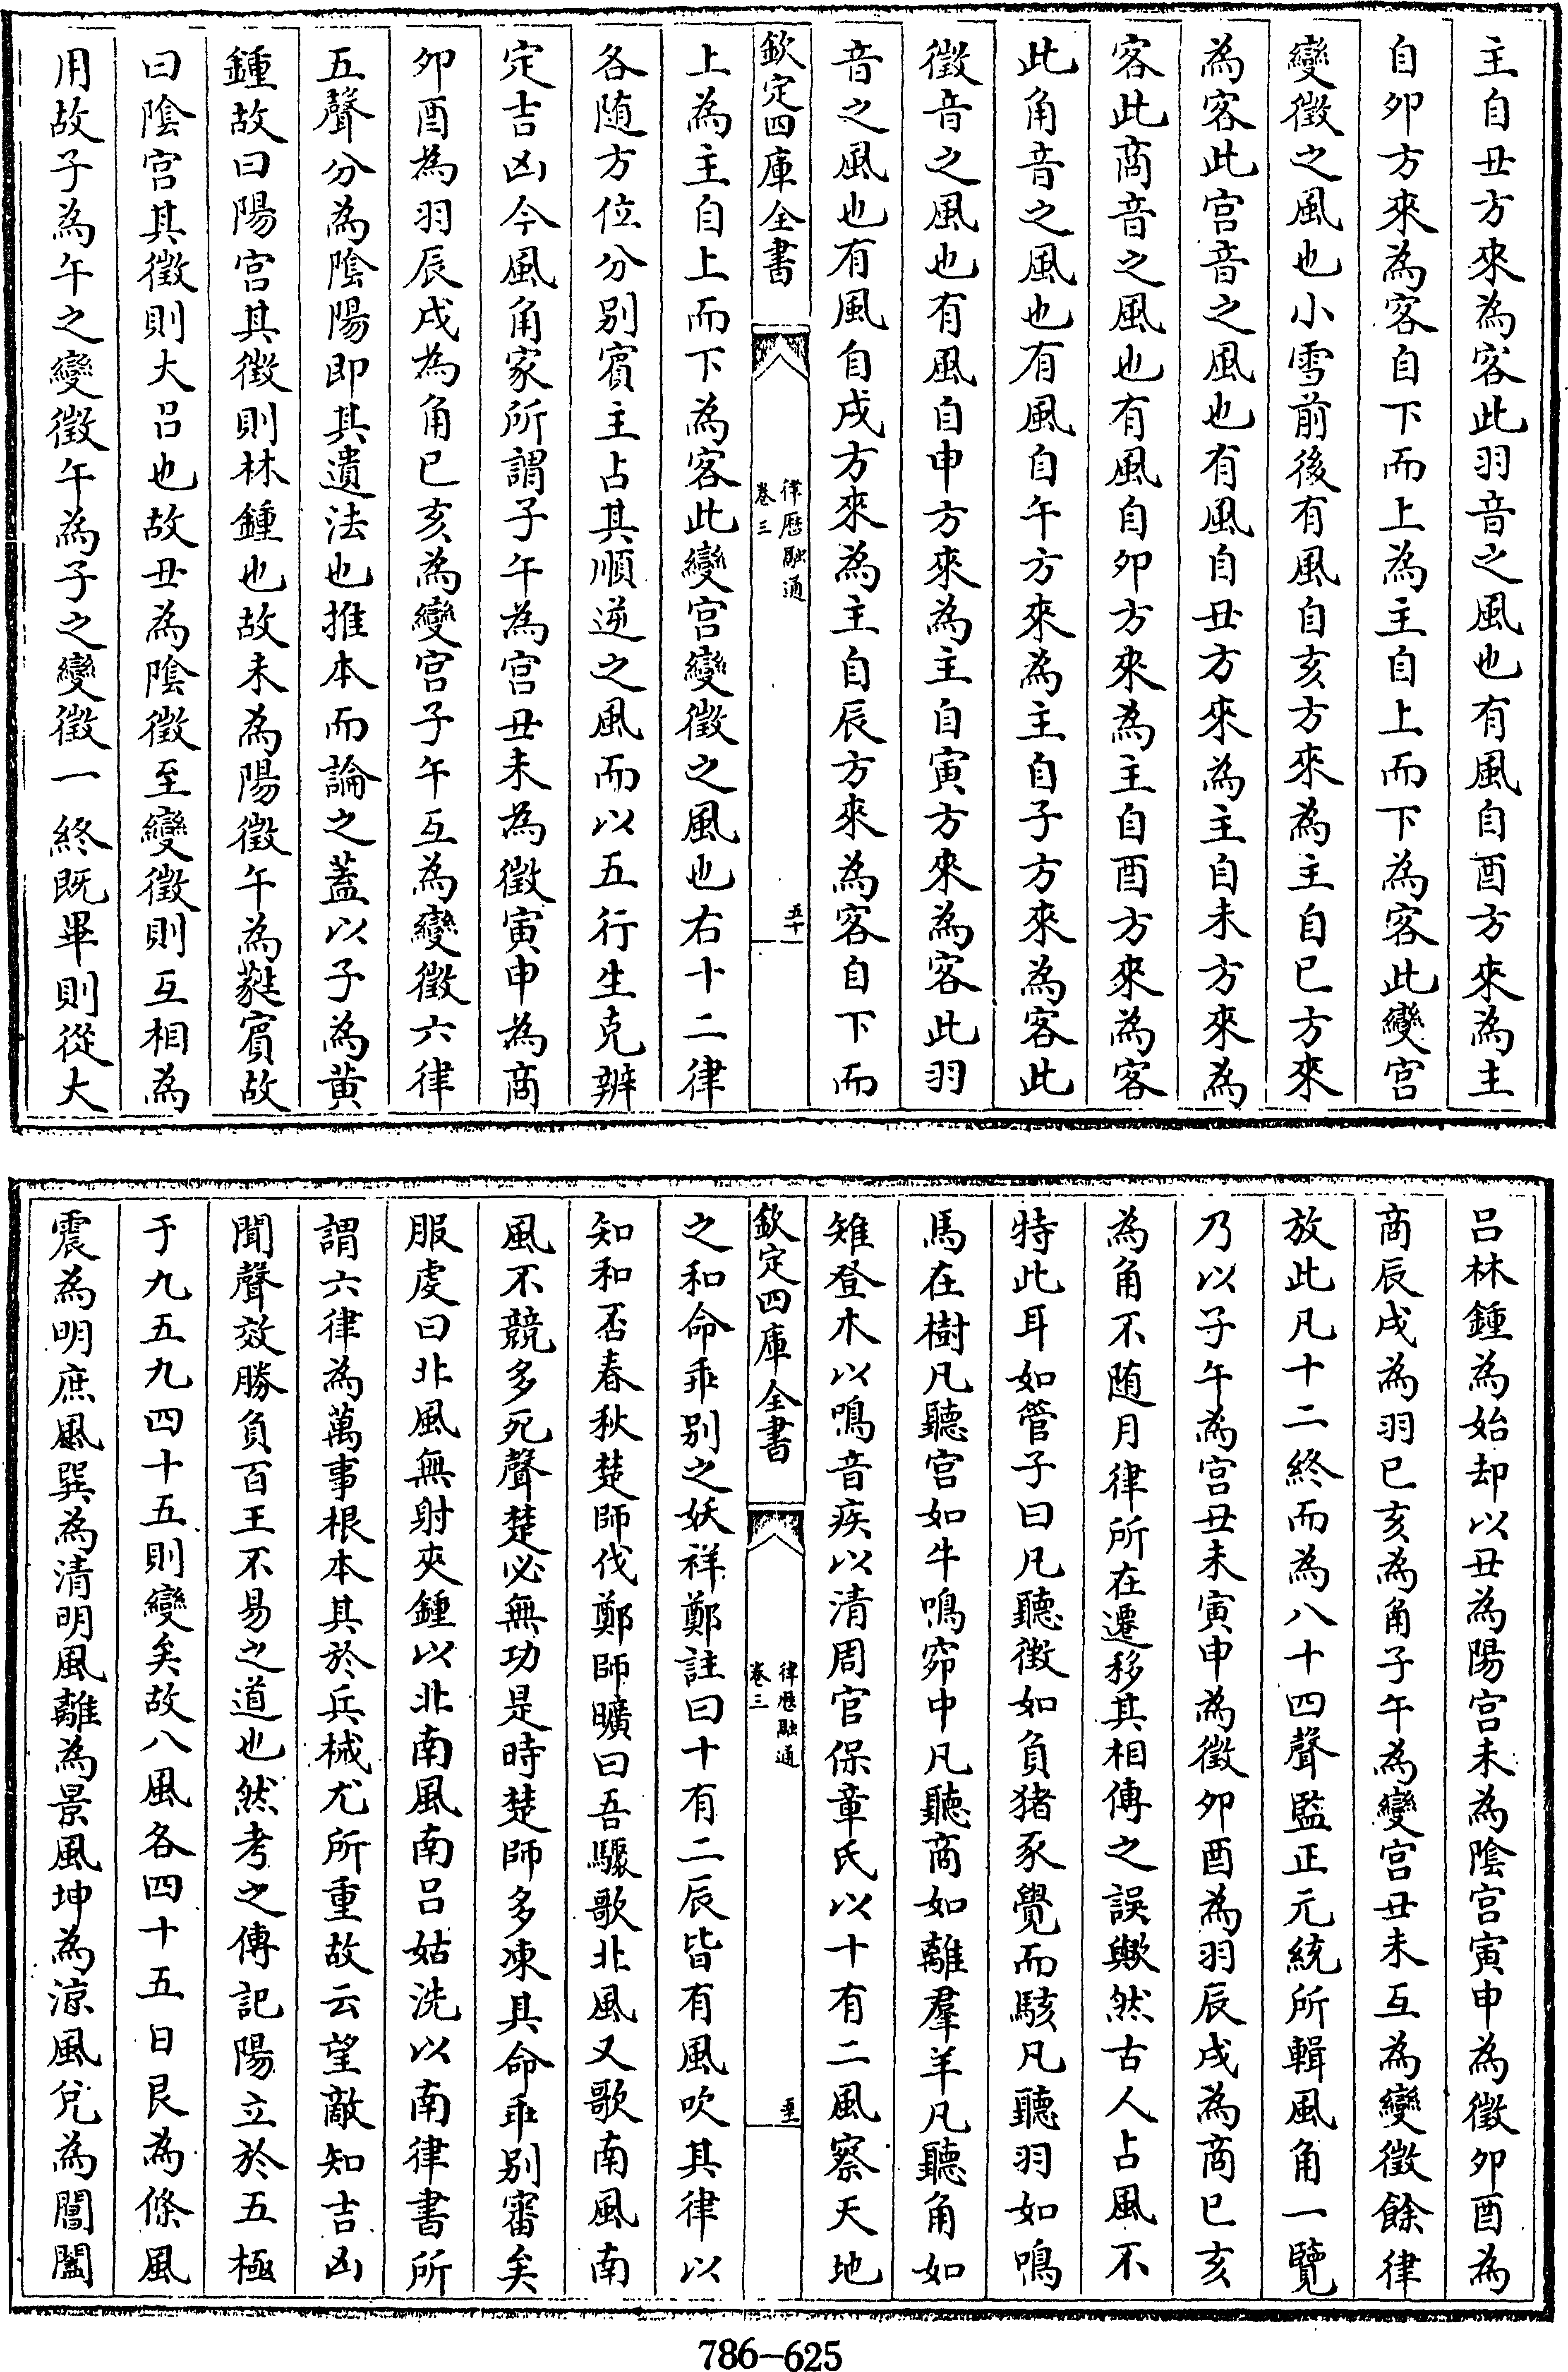 主自丑方來為客此羽音之風也有風自酉方來為主
自卯方來為客自下而上為主自上而下為客此變宮
變徵之風也小雪前後有風自亥方來為主自巳方來
為客此宮音之風也有風自丑方來為主自未方來為
客此商音之風也有風自卯方來為主自酉方來為客
此角音之風也有風自午方來為主自子方來為客此
徵音之風也有風自申方來為主自寅方來為客此羽
音之風也有風自戌方來為主自辰方來為客自下而
欽定四庫全書
律歷融通
卷三
五十一
上為主自上而下為客此變宮變徵之風也右十二律
各隨方位分別賓主占其順逆之風而以五行生克辨
定吉凶今風角家所謂子午為宮丑未為徵寅申為商
卯酉為羽辰戌為角巳亥為變宮子午互為變徵六律
五聲分為陰陽即其遺法也推本而論之蓋以子為黃
鍾故曰陽宮其徵則林鍾也故未為陽徵午為蕤賓故
曰陰宮其徵則大呂也故丑為陰徵至變徵則互相為
用故子為午之變徵午為子之變徵一終既畢則從大
呂林鍾為始却以丑為陽宮未為陰宮寅申為徵卯酉為
商辰戌為羽巳亥為角子午為變宮丑未互為變徵餘律
放此凡十二終而為八十四聲監正元統所輯風角一覽
乃以子午為宮丑未寅申為徵卯酉為羽辰戌為商巳亥
為角不隨月律所在遷移其相傳之誤歟然古人占風不
特此耳如管子曰凡聽徵如負猪豕覺而駭凡聽羽如鳴
馬在樹凡聽宮如牛鳴窌中凡聽商如離羣羊凡聽角如
雉登木以鳴音疾以清周官保章氏以十有二風察天地
欽定四庫全書
律歷融通
卷三
至
之和命乖別之妖祥鄭註曰十有二辰皆有風吹其律以
知和否春秋楚師伐鄭師曠曰吾驟歌北風又歌南風南
風不競多死聲楚必無功是時楚師多凍其命乖別審矣
服虔曰北風無射夾鍾以北南風南呂姑洗以南律書所
謂六律為萬事根本其於兵械尤所重故云望敵知吉凶
聞聲效勝負百王不易之道也然考之傳記陽立於五極
于九五九四十五則變矣故八風各四十五日艮為條風
震為明庶風巽為清明風離為景風坤為涼風兌為閶闔
786-625